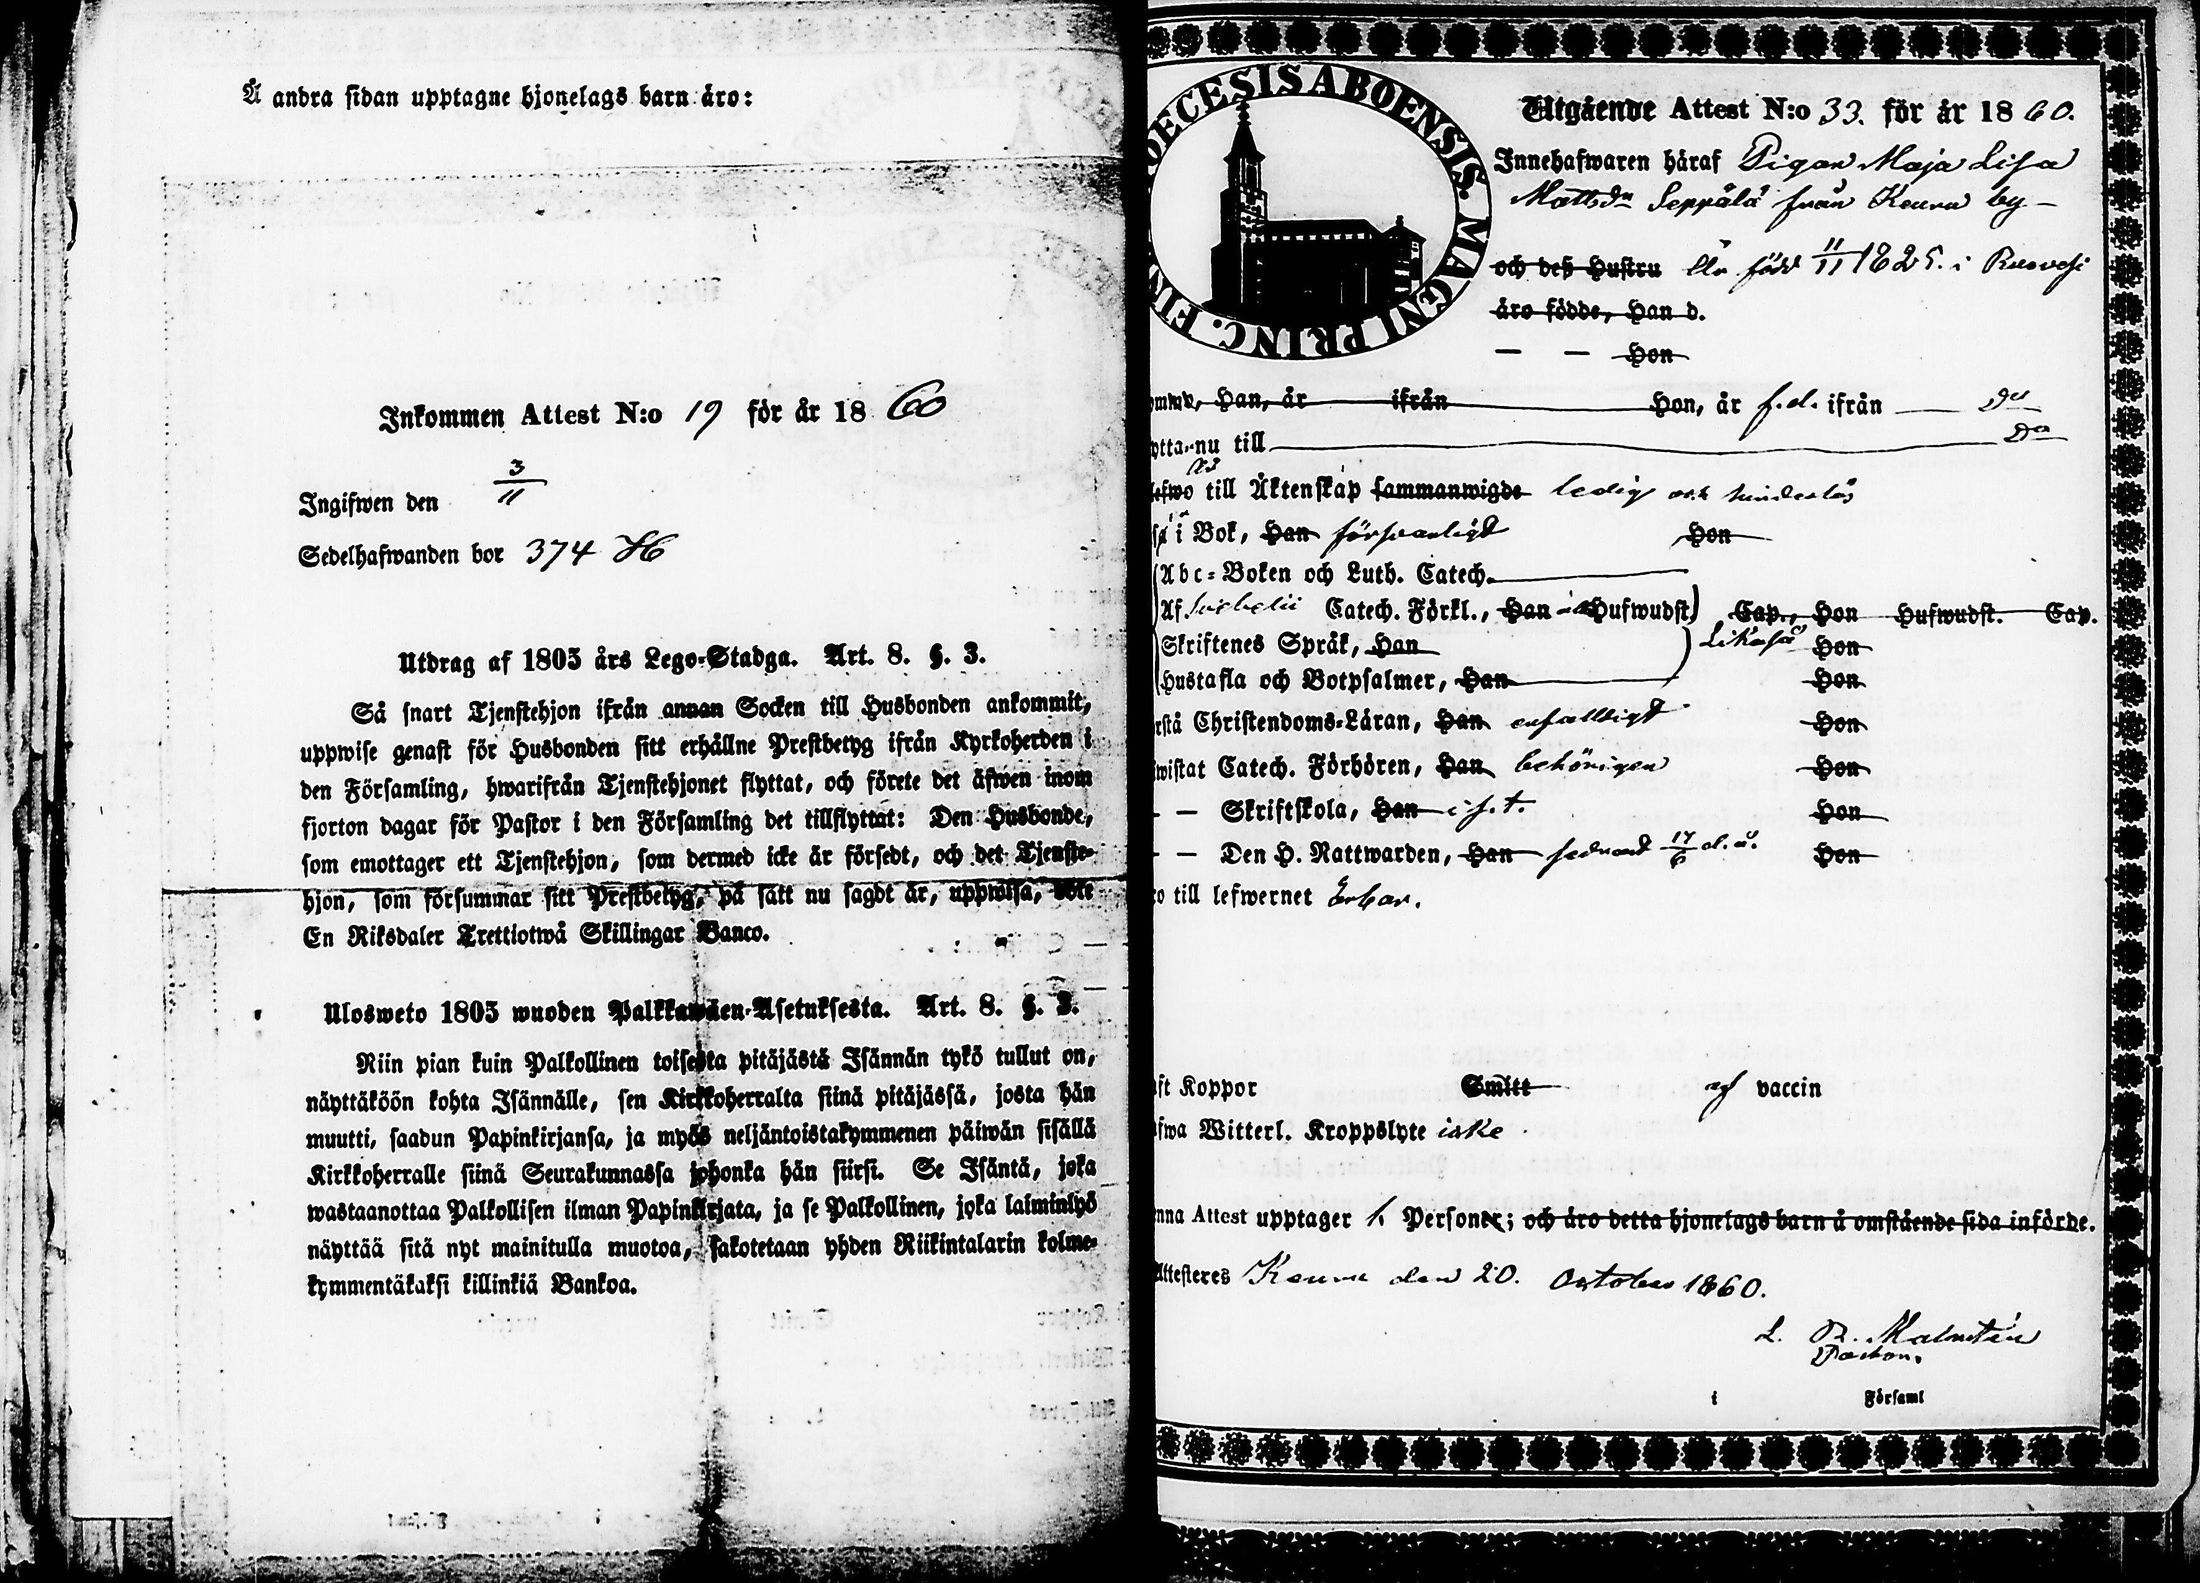 Å andra sidan upptagne hjonelags barn äro:
Inkommen Attest N:o 19 för år 1860
Ingifwen den 3/11
Sedelhafwanden bor 374 H
Utdrag af 1805 års Lego-Stadga. Art. 8. §. 3.
Så snart Tjenstehjon ifrån annan Socken till Husbonden ankommit,
uppwise genast för Husbonden sitt erhållne Prestbetyg ifrån Kyrkoherden i
den Församling, hwarifrån Tjenstehjonet flyttat, och förete det äfwen inom
fjorton dagar för Pastor i den Församling det tillflyttat: Den Husbonde,
som emottager ett Tjenstehjon, som dermed icke är försedt, och det Tjenste-
hjon, som försummar sitt Prestbetyg, på sätt nu sagdt är, uppwisa, böte
En Riksdaler Trettiotwå Skillingar Banco.
Ulosweto 1805 wuoden Palkkawäen-Asetuksesta. Art. 8. §. 3.
Niin pian kuin Palkollinen toisesta pitäjästä Isännän tykö tullut on,
näyttäköön kohta Isännälle, sen Kirkkoherralta siinä pitäjässä, josta hän
muutti, saadun Papinkirjansa, ja myös neljäntoistakymmenen päiwän sisällä
Kirkkoherralle siinä Seurakunnassa johonka hän siirsi. Se Isäntä, joka
wastaanottaa Palkollisen ilman Papinkirjata, ja se Palkollinen, joka laiminlyö
näyttää sitä nyt mainitulla muotoa, sakotetaan yhden Riikintalarin kolme-
kymmentäkaksi killinkiä Bankoa.
DECESIS ABOENSIS. MAGNI PRINC. FIN
Utgående Attest N:o 33. för år 1860.
Innehafwaren häraf Pigan Maja Lisa
Mattsdr Seppälä från Keuru by
och deß Hustru Är född 11/11 1825. i Ruovesi
äro födde, Han d.
— — Hon
Han, är ifrån Hon, är f.d. ifrån Do
nu till Do
till Äktenskap sammanwigde ledig och hinderlös
i Bok, Han försvarligt Hon
Abc-Boken och Luth. Catech.
Af Svebelii Catech. Förkl., Han Hufwudst. Cap., Hon Hufwudst. Cap.
Skriftenes Språk, Han Likaså Hon
Hustafla och Botpsalmer, Han Hon
Christendoms-Läran, Han enfaldigt Hon
Catech. Förhören, Han behörigen Hon
— — Skriftskola, Han i s.t. Hon
— — Den H. Nattwarden, Han sednast 17/6 d.å. Hon
till lefwernet Erbar.
Koppor Smitt af vaccin
Witterl. Kroppslyte icke
Attest upptager 1. Personer; och äro detta hjonelags barn å omstående sida införde.
Attesteres Keuru den 20. October 1860.
L. R. Malmstén
Pastor.
i Församl